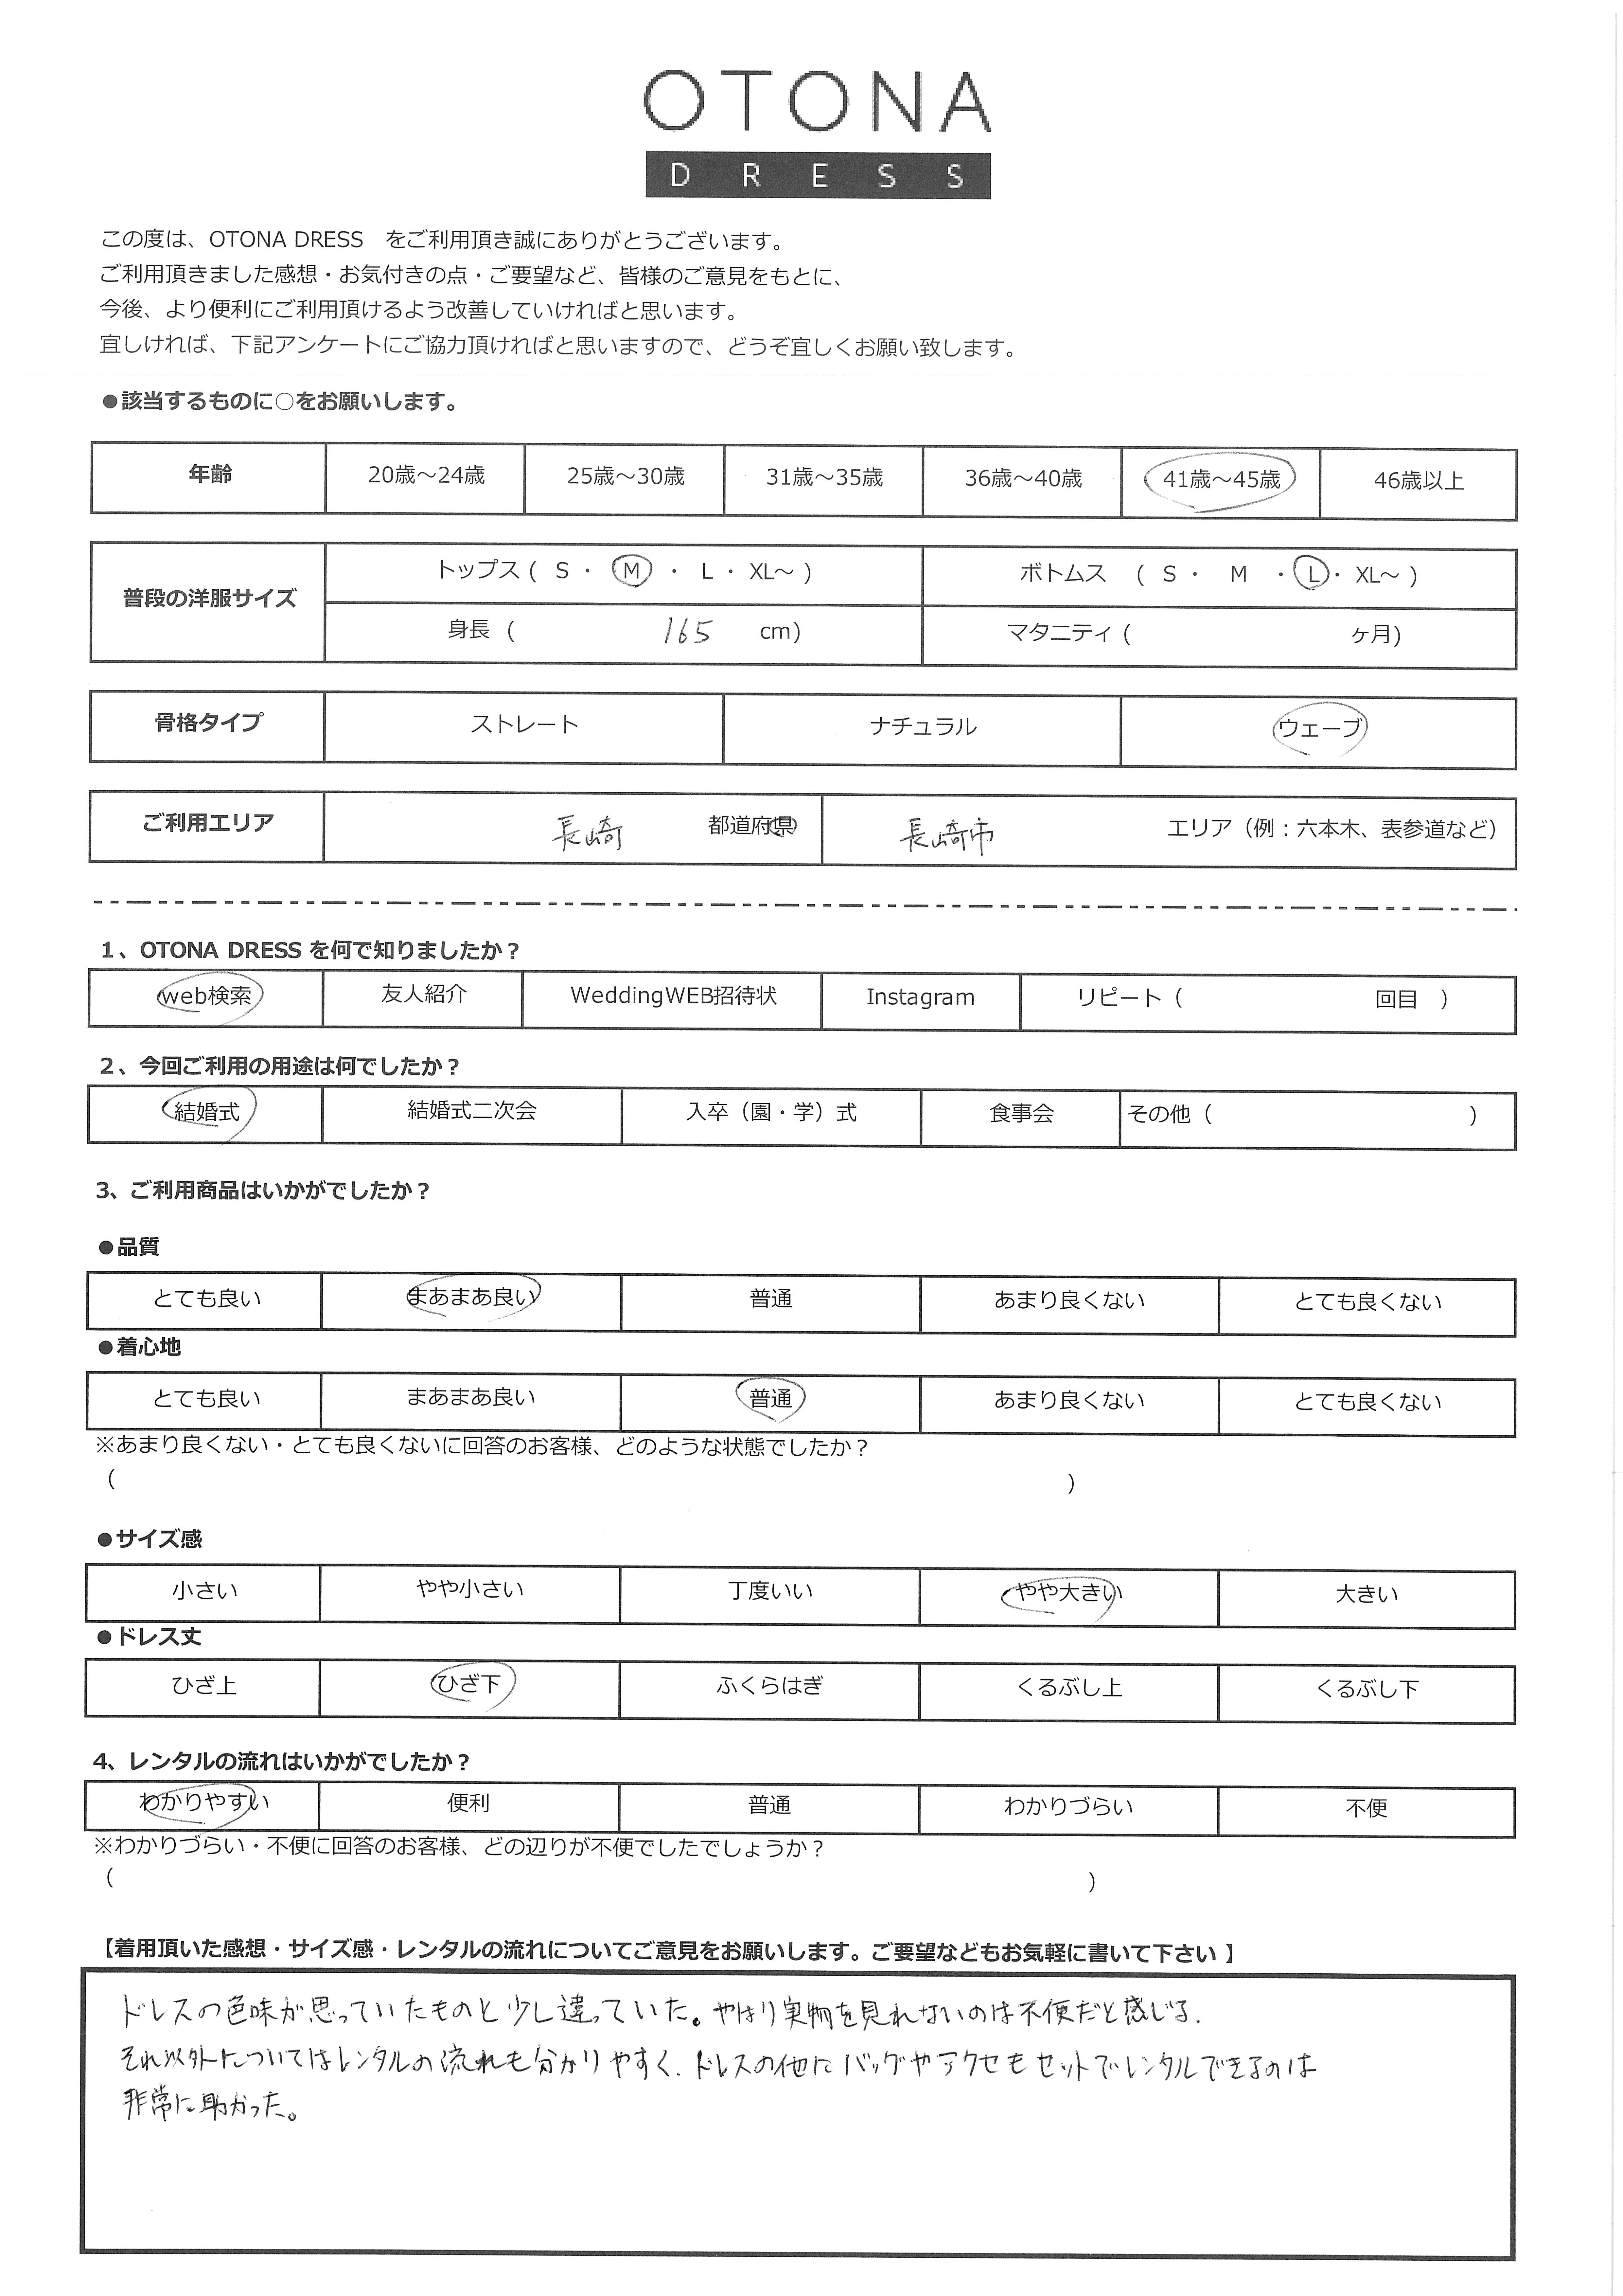 OTONA
DRESS
この度は、OTONA DRESS　をご利用頂き誠にありがとうございます。
ご利用頂きました感想・お気付きの点・ご要望など、皆様のご意見をもとに、
今後、より便利にご利用頂けるよう改善していければと思います。
宜しければ、下記アンケートにご協力頂ければと思いますので、どうぞ宜しくお願い致します。
●該当するものに○をお願いします。
年齢 20歳～24歳 25歳～30歳 31歳～35歳 36歳～40歳 41歳～45歳 46歳以上
普段の洋服サイズ
トップス ( S ・ M ・ L ・ XL～ ) ボトムス ( S ・ M ・ L ・ XL～ )
身長 ( 165 cm) マタニティ ( ヶ月)
骨格タイプ ストレート ナチュラル ウェーブ
ご利用エリア 長崎 都道府県 長崎市 エリア（例：六本木、表参道など）
1、OTONA DRESS を何で知りましたか？
web検索 友人紹介 WeddingWEB招待状 Instagram リピート（ 回目 ）
2、今回ご利用の用途は何でしたか？
結婚式 結婚式二次会 入卒（園・学）式 食事会 その他（ ）
3、ご利用商品はいかがでしたか？
●品質
とても良い まあまあ良い 普通 あまり良くない とても良くない
●着心地
とても良い まあまあ良い 普通 あまり良くない とても良くない
※あまり良くない・とても良くないに回答のお客様、どのような状態でしたか？
（ ）
●サイズ感
小さい やや小さい 丁度いい やや大きい 大きい
●ドレス丈
ひざ上 ひざ下 ふくらはぎ くるぶし上 くるぶし下
4、レンタルの流れはいかがでしたか？
わかりやすい 便利 普通 わかりづらい 不便
※わかりづらい・不便に回答のお客様、どの辺りが不便でしたでしょうか？
（ ）
【着用頂いた感想・サイズ感・レンタルの流れについてご意見をお願いします。ご要望などもお気軽に書いて下さい 】
ドレスの色味が思っていたものと少し違っていた。やはり実物を見れないのは不便だと感じる.
それ以外についてはレンタルの流れも分かりやすく、ドレスの他にバッグやアクセもセットでレンタルできるのは
非常に助かった。